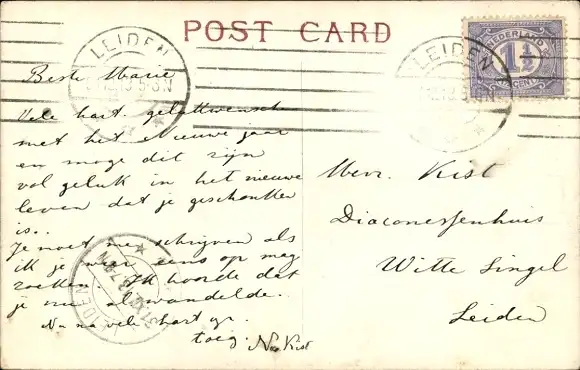 POST CARD
LEIDEN
LEIDEN
NEDERLAND
1½
CENT
Beste Marie
Vele hart. gelukwensch
met het Nieuwe jaar
en moge dit zijn
vol geluk in het nieuwe
leven dat je geschonken
is..
Je moet me schrijven als
ik je weer eens op mag
zoeken. Ik hoorde dat
je nu al wandelde.
Nu na vele hart. gr.
toeg. Kist
Mevr. Kist
Diaconessenhuis
Witte Singel
Leiden